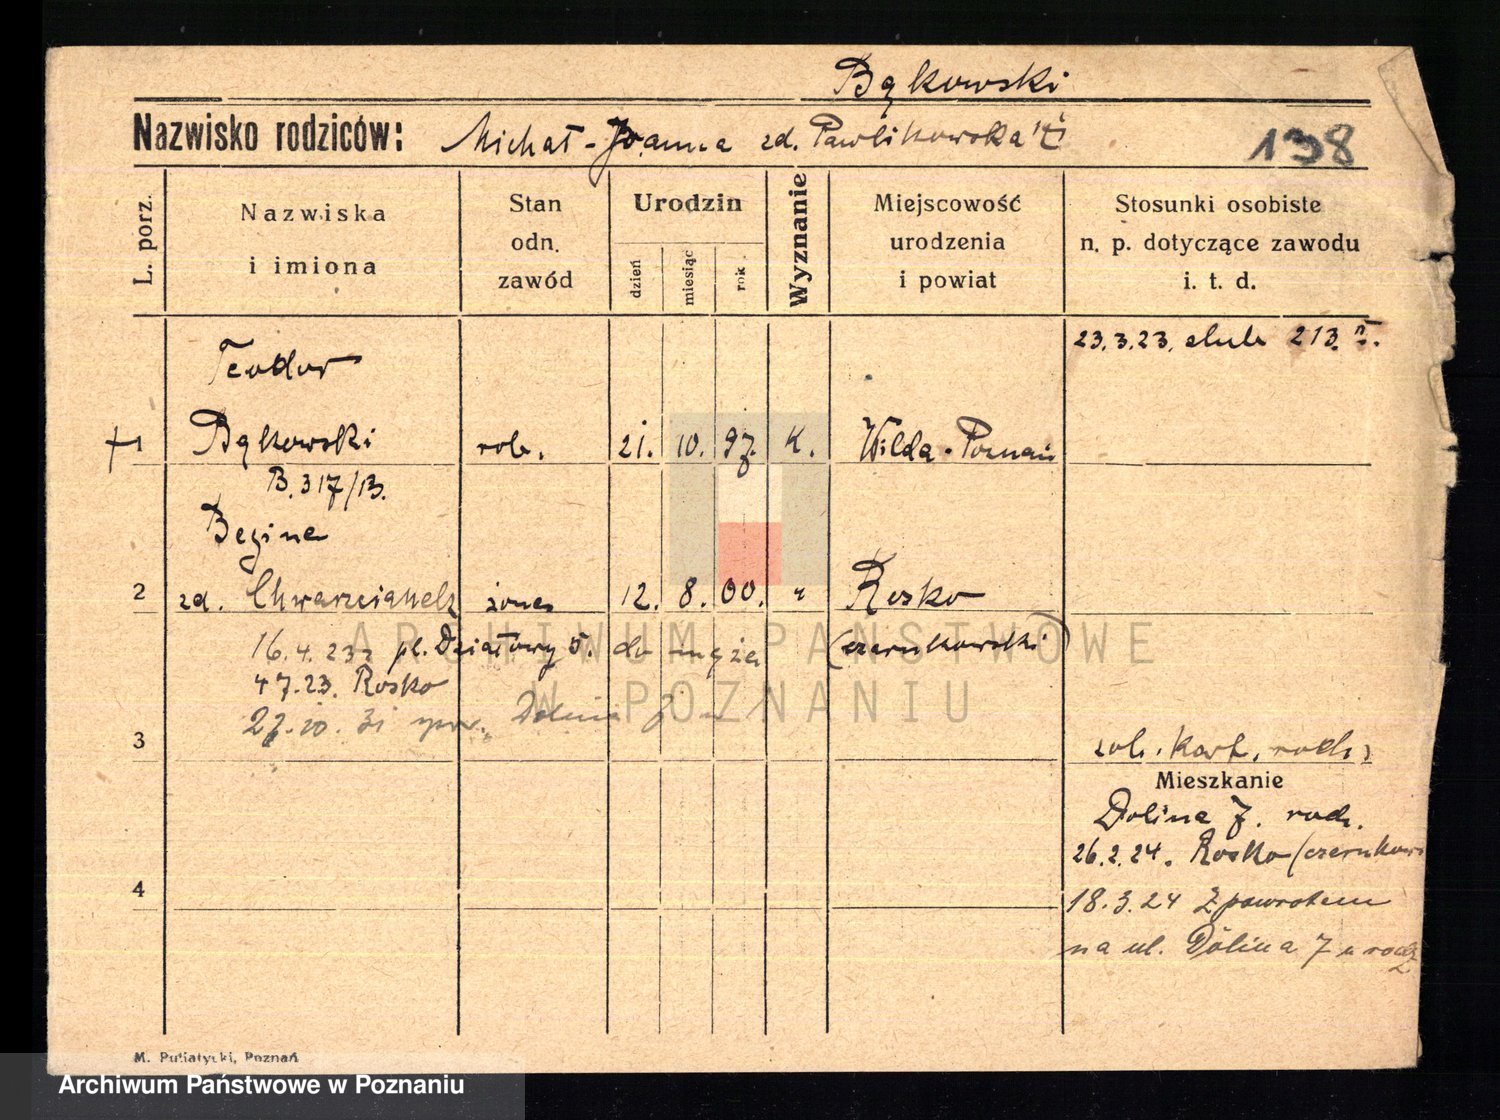 Bąkowski
Nazwisko rodziców: Michał - Joanna zd. Pawlikowska
138
L. porz.
Nazwiska
i imiona
Stan
odn.
zawód
Urodzin
dzień
miesiąc
rok
Wyznanie
Miejscowość
urodzenia
i powiat
Stosunki osobiste
n. p. dotyczące zawodu
i. t. d.
23.3.23. ślub 213.
Teodor
1 Bąkowski rob. 21. 10. 97. K. Wilda - Poznań
B. 317/B.
2 zd. żona 12. 8. 00. " Rosko
16.4.23 pl. Działowy 5. do męża (czarnkowski)
4 7.23. Rosko
27.10.31
3
zob. kart. rodz.
Mieszkanie
Dolina 7. rodz.
26.2.24. Rosko (czarnkows
4
18.3.24 Z powrotem
na ul. Dolina 7 u rodz
M. Putiatycki, Poznań
ARCHIWUM PAŃSTWOWE
W POZNANIU
Archiwum Państwowe w Poznaniu